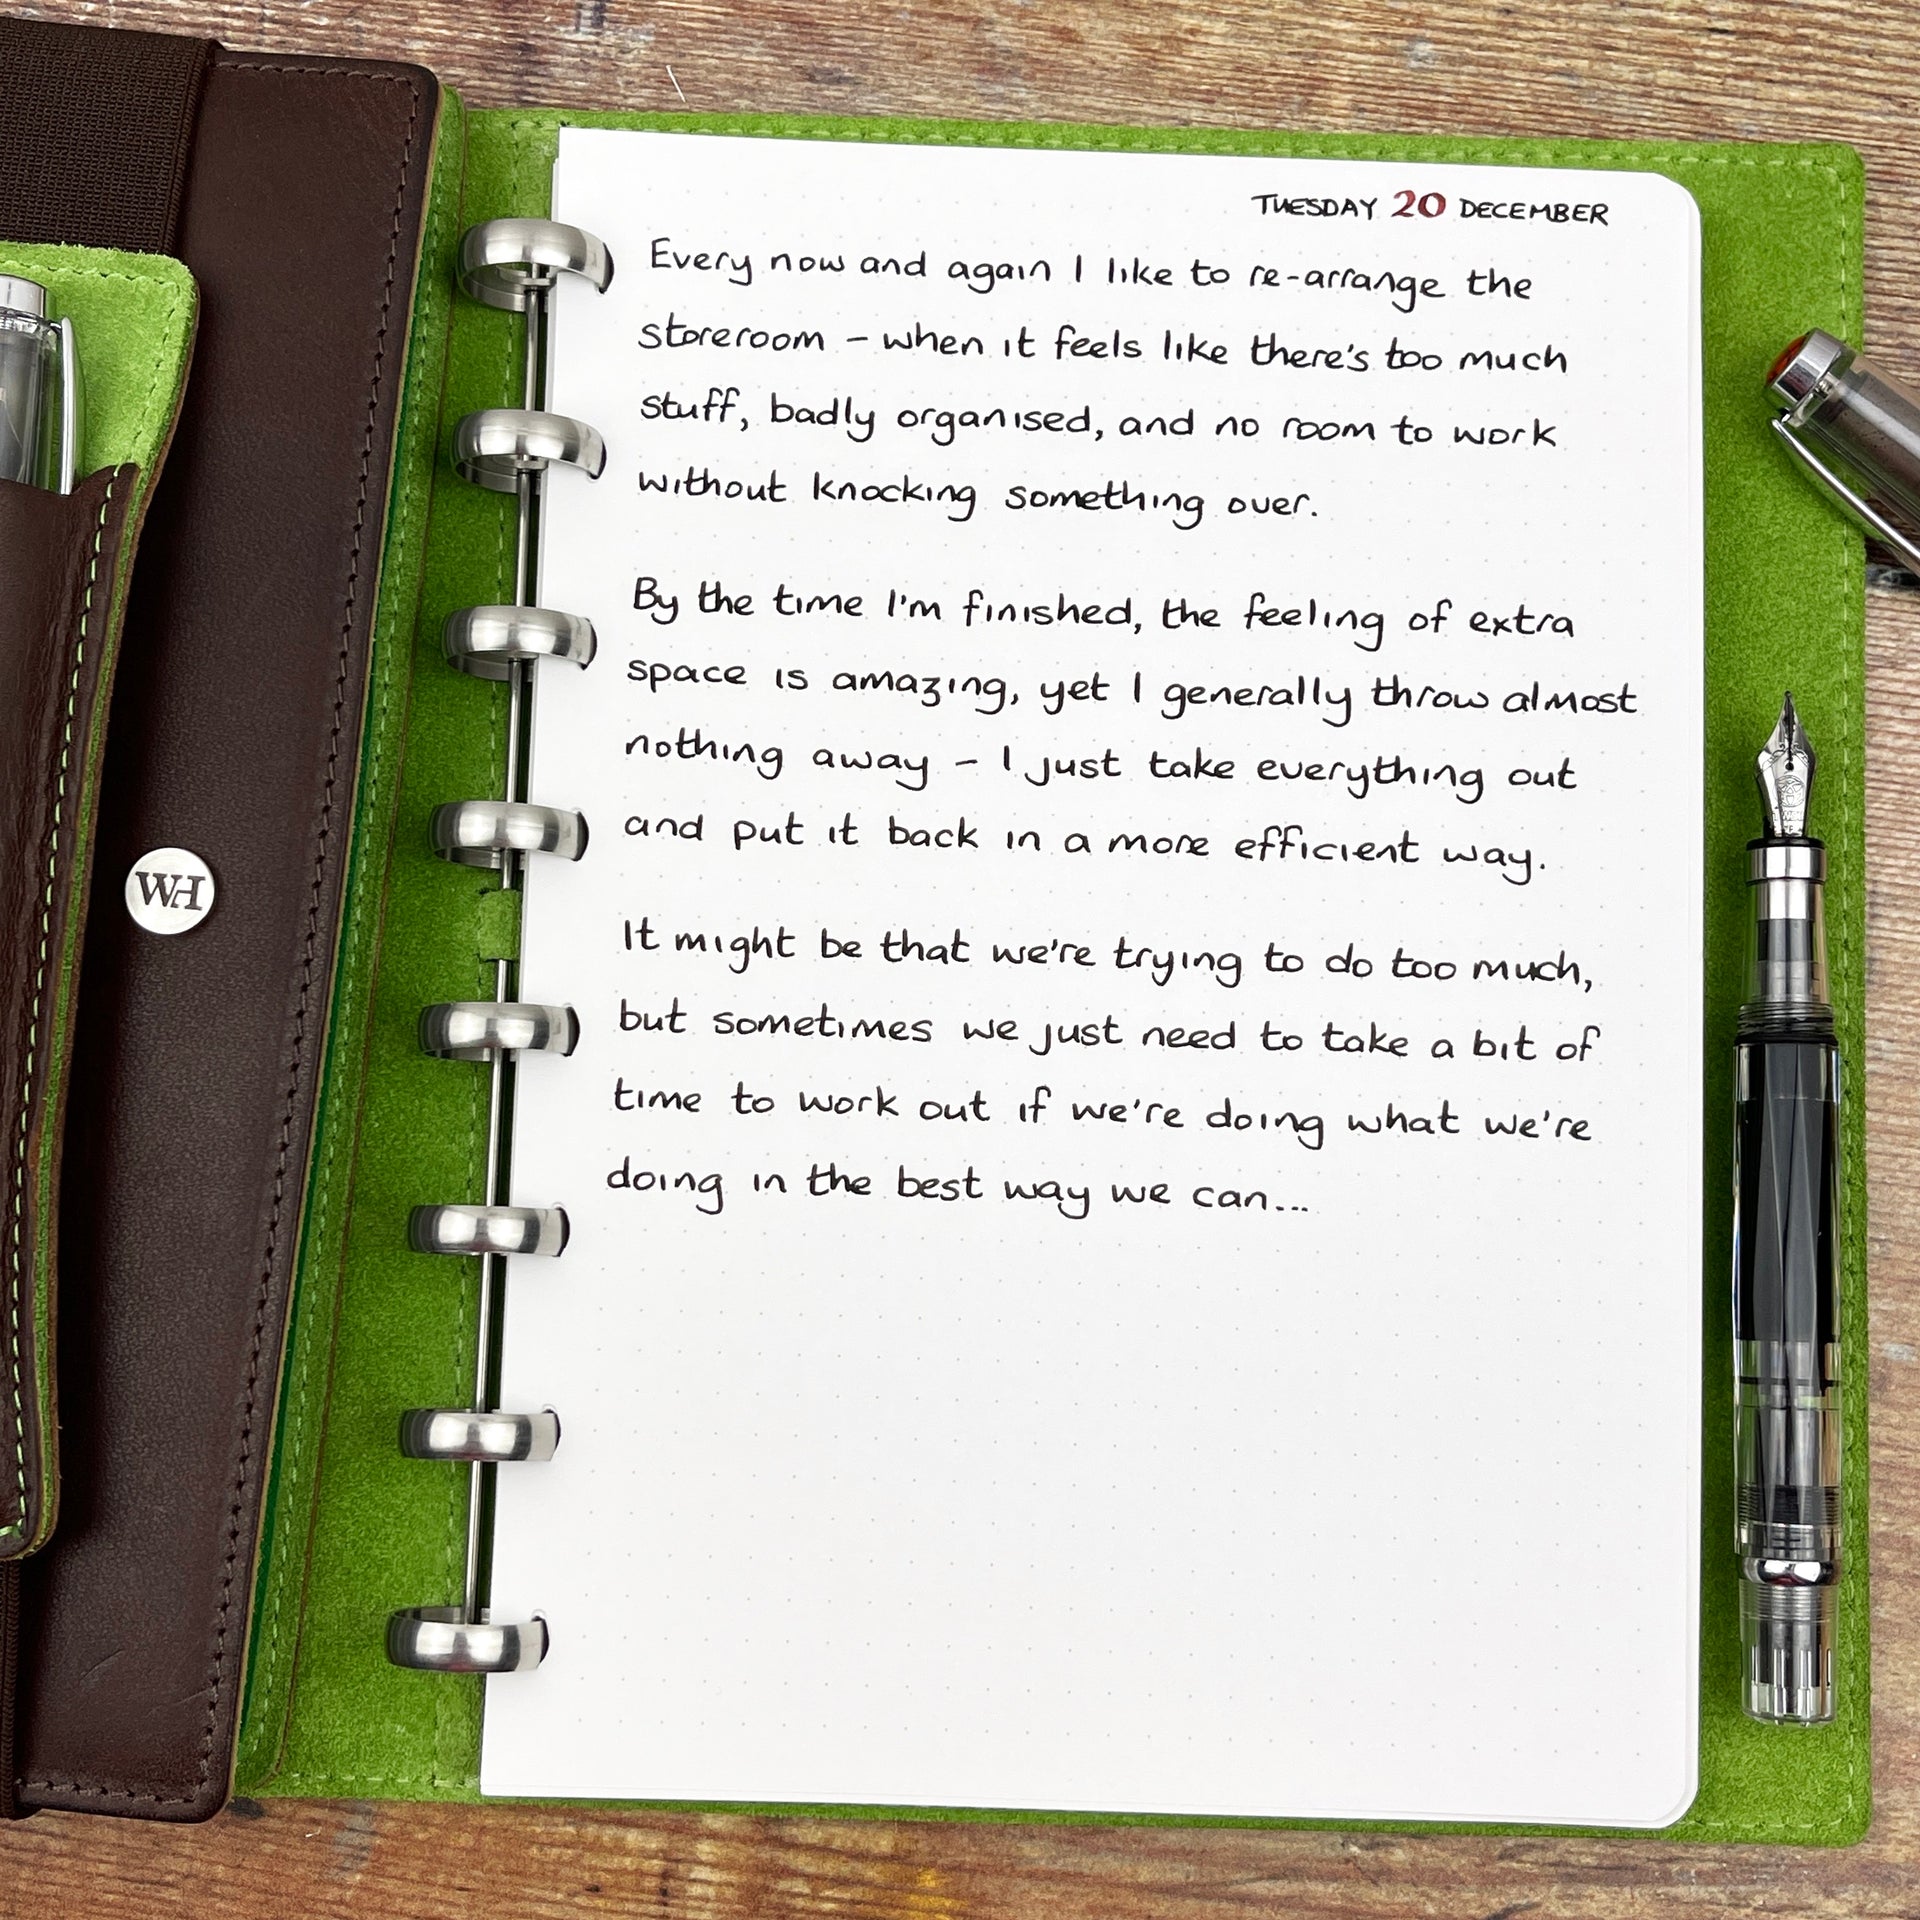 TUESDAY 20 DECEMBER
Every now and again I like to re-arrange the
storeroom – when it feels like there's too much
stuff, badly organised, and no room to work
without knocking something over.
By the time I'm finished, the feeling of extra
space is amazing, yet I generally throw almost
nothing away – I just take everything out
and put it back in a more efficient way.
It might be that we're trying to do too much,
but sometimes we just need to take a bit of
time to work out if we're doing what we're
doing in the best way we can...
WH